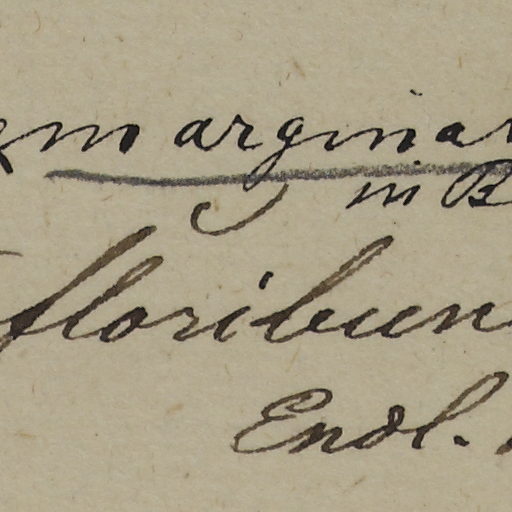 emarginar
in B
floribun
Endl.